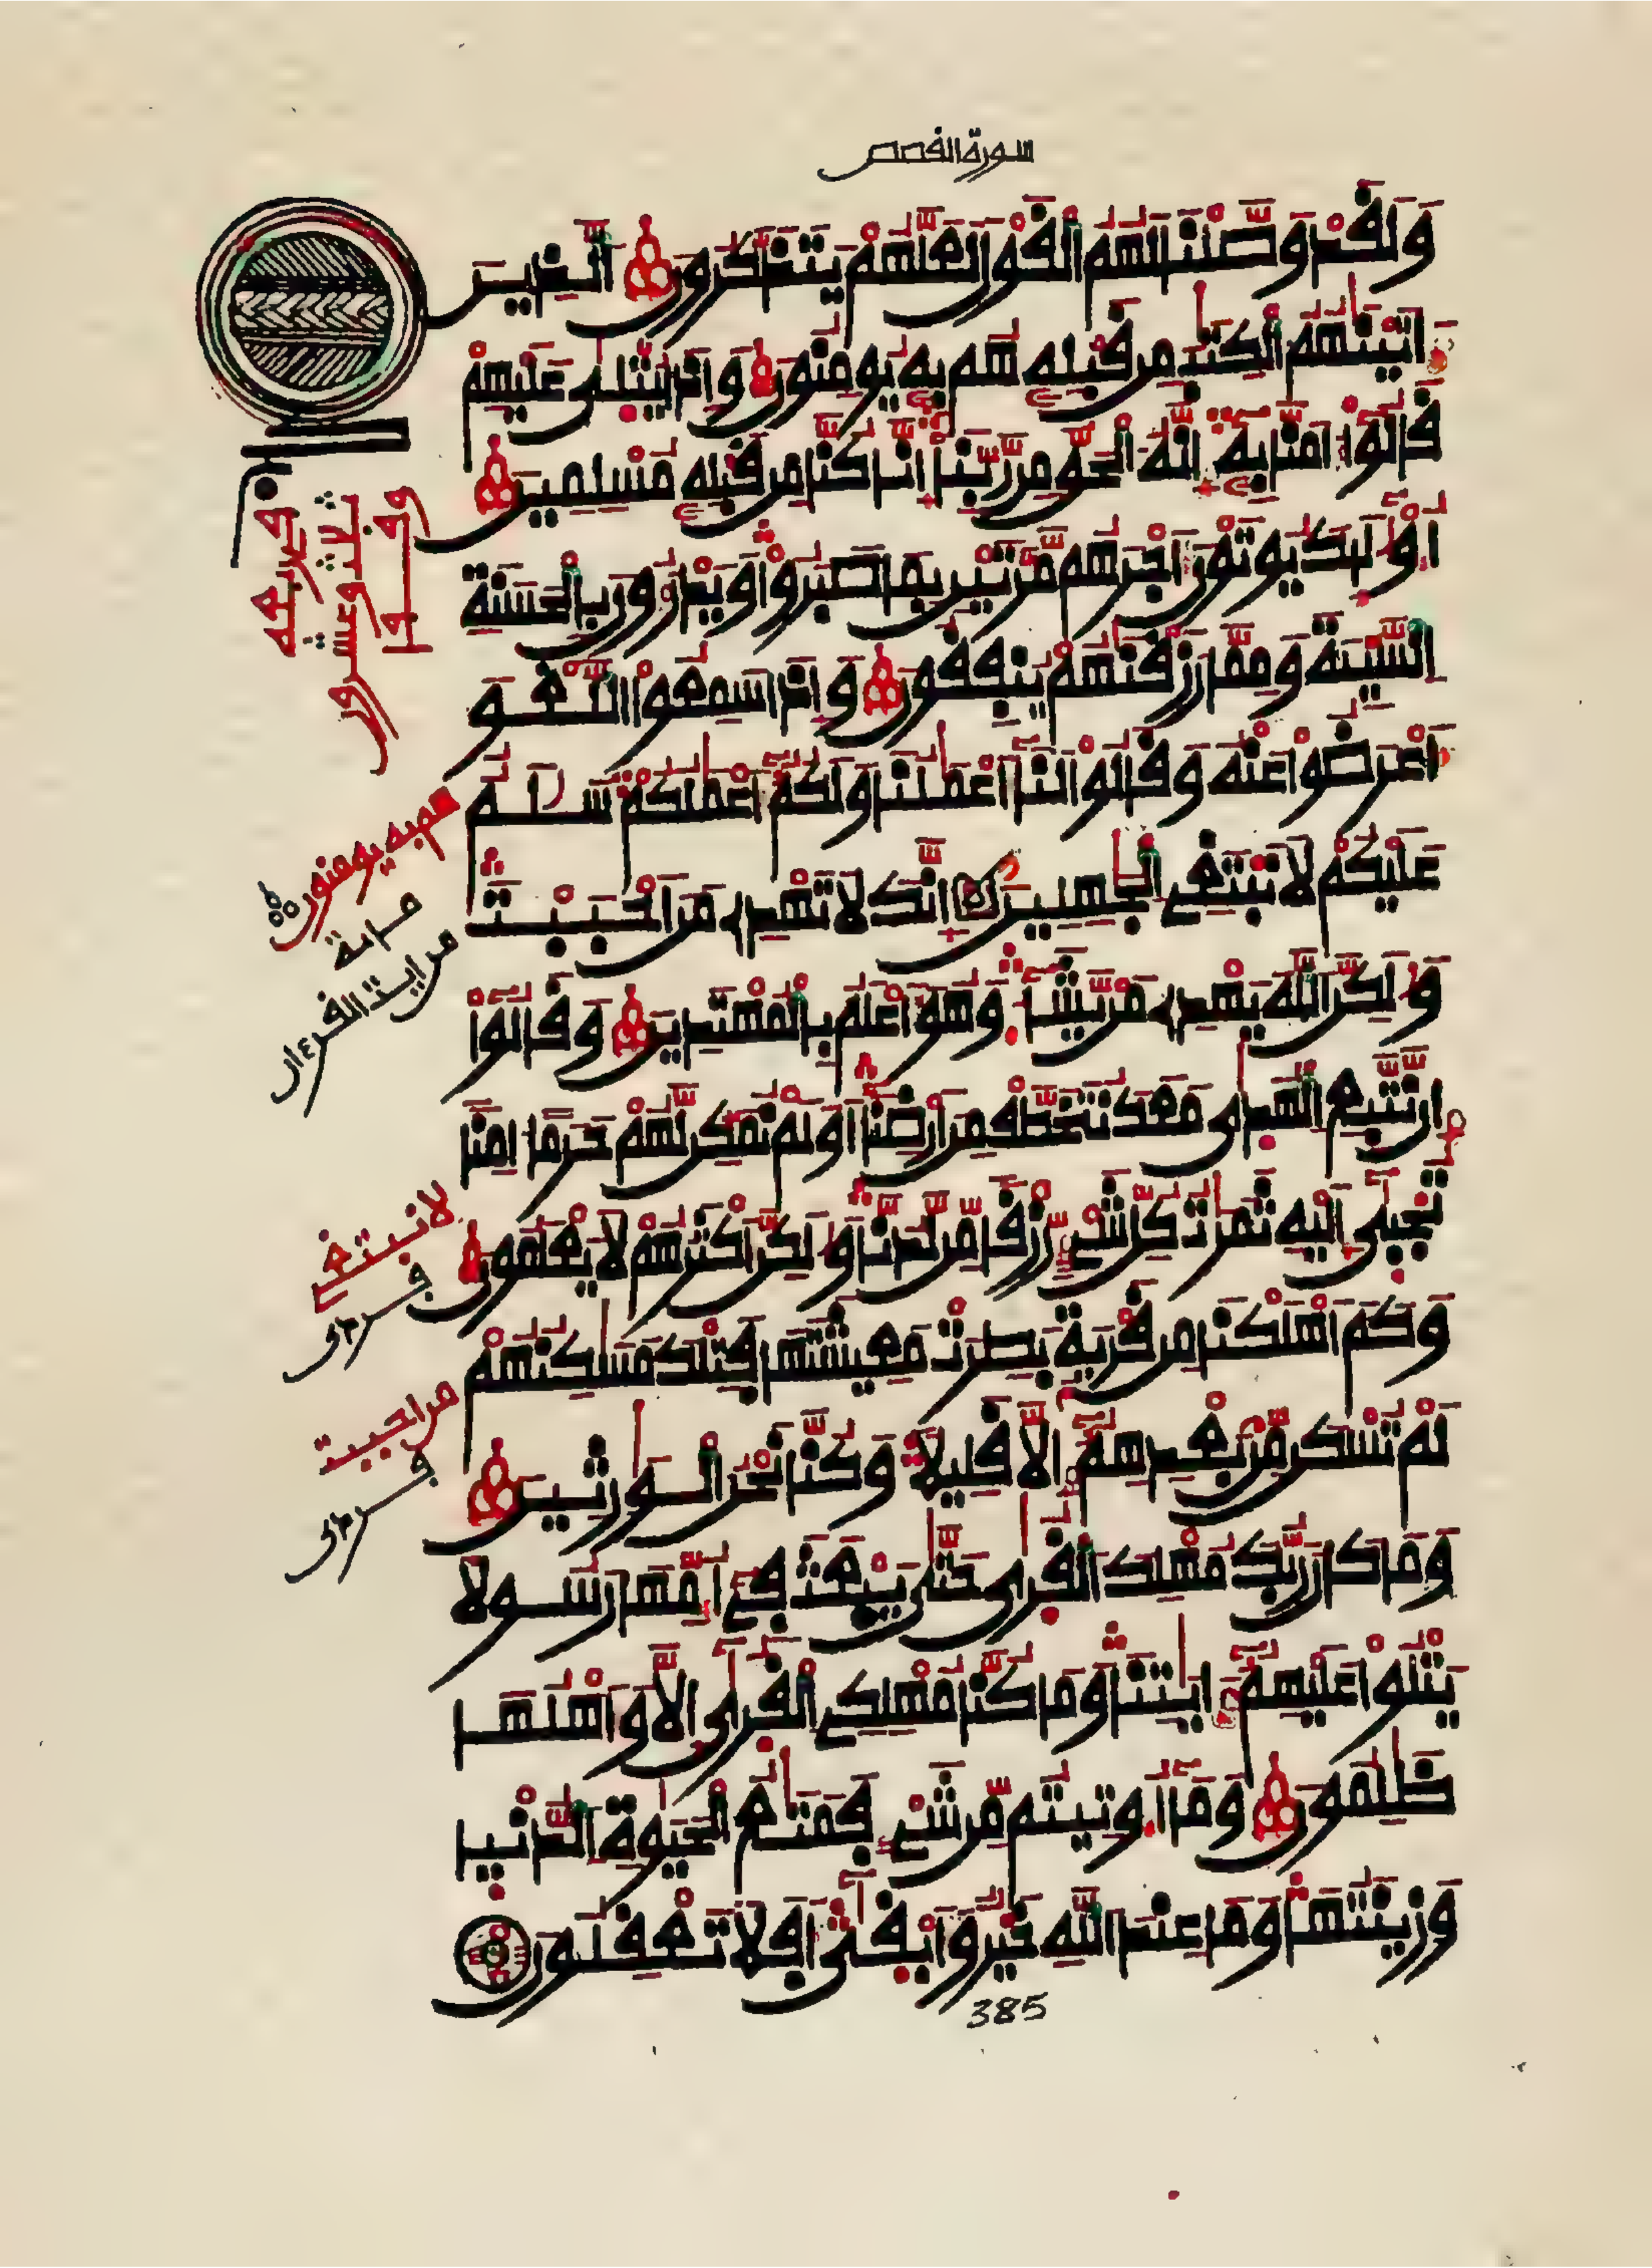 سورة القصص
وَلَقَدْ وَصَّلْنَا لَهُمُ الْقَوْلَ لَعَلَّهُمْ يَتَذَكَّرُونَ الَّذِينَ
ءَاتَيْنَٰهُمُ الْكِتَٰبَ مِن قَبْلِهِۦ هُم بِهِۦ يُومِنُونَ وَإِذَا يُتْلَىٰ عَلَيْهِمْ
قَالُوٓا ءَامَنَّا بِهِۦٓ إِنَّهُ الْحَقُّ مِن رَّبِّنَآ إِنَّا كُنَّا مِن قَبْلِهِۦ مُسْلِمِينَ
أُوْلَٰٓئِكَ يُوتَوْنَ أَجْرَهُم مَّرَّتَيْنِ بِمَا صَبَرُوا وَيَدْرَءُونَ بِالْحَسَنَةِ
السَّيِّئَةَ وَمِمَّا رَزَقْنَٰهُمْ يُنفِقُونَ وَإِذَا سَمِعُوا اللَّغْوَ
أَعْرَضُوا عَنْهُ وَقَالُوا لَنَآ أَعْمَٰلُنَا وَلَكُمُۥٓ أَعْمَٰلُكُمْ سَلَٰمٌ
عَلَيْكُمْ لَا نَبْتَغِى الْجَٰهِلِينَ إِنَّكَ لَا تَهْدِى مَنْ أَحْبَبْتَ
وَلَٰكِنَّ اللَّهَ يَهْدِى مَن يَّشَآءُ وَهُوَ أَعْلَمُ بِالْمُهْتَدِينَ وَقَالُوٓا
إِن نَّتَّبِعِ الْهُدَىٰ مَعَكَ نُتَخَطَّفْ مِنَ ارْضِنَآ أَوَلَمْ نُمَكِّن لَّهُمْ حَرَمًا ءَامِنًا
تُجْبَىٰٓ إِلَيْهِ ثَمَرَٰتُ كُلِّ شَىْءٍ رِّزْقًا مِّن لَّدُنَّا وَلَٰكِنَّ أَكْثَرَهُمْ لَا يَعْلَمُونَ
وَكَمَ اهْلَكْنَا مِن قَرْيَةٍ بَطِرَتْ مَعِيشَتَهَا فَتِلْكَ مَسَٰكِنُهُمْ
لَمْ تُسْكَن مِّن بَعْدِهِمُۥٓ إِلَّا قَلِيلًا وَكُنَّا نَحْنُ الْوَٰرِثِينَ
وَمَا كَانَ رَبُّكَ مُهْلِكَ الْقُرَىٰ حَتَّىٰ يَبْعَثَ فِىٓ أُمِّهَا رَسُولًا
يَتْلُوا عَلَيْهِمُۥٓ ءَايَٰتِنَا وَمَا كُنَّا مُهْلِكِى الْقُرَىٰٓ إِلَّا وَأَهْلُهَا
ظَٰلِمُونَ وَمَآ أُوتِيتُم مِّن شَىْءٍ فَمَتَٰعُ الْحَيَوٰةِ الدُّنْيَا
وَزِينَتُهَا وَمَا عِندَ اللَّهِ خَيْرٌ وَأَبْقَىٰٓ أَفَلَا تَعْقِلُونَ
هم به يومنون
من اية
من ايت القرءان
لا نبتغى
من احببت
385